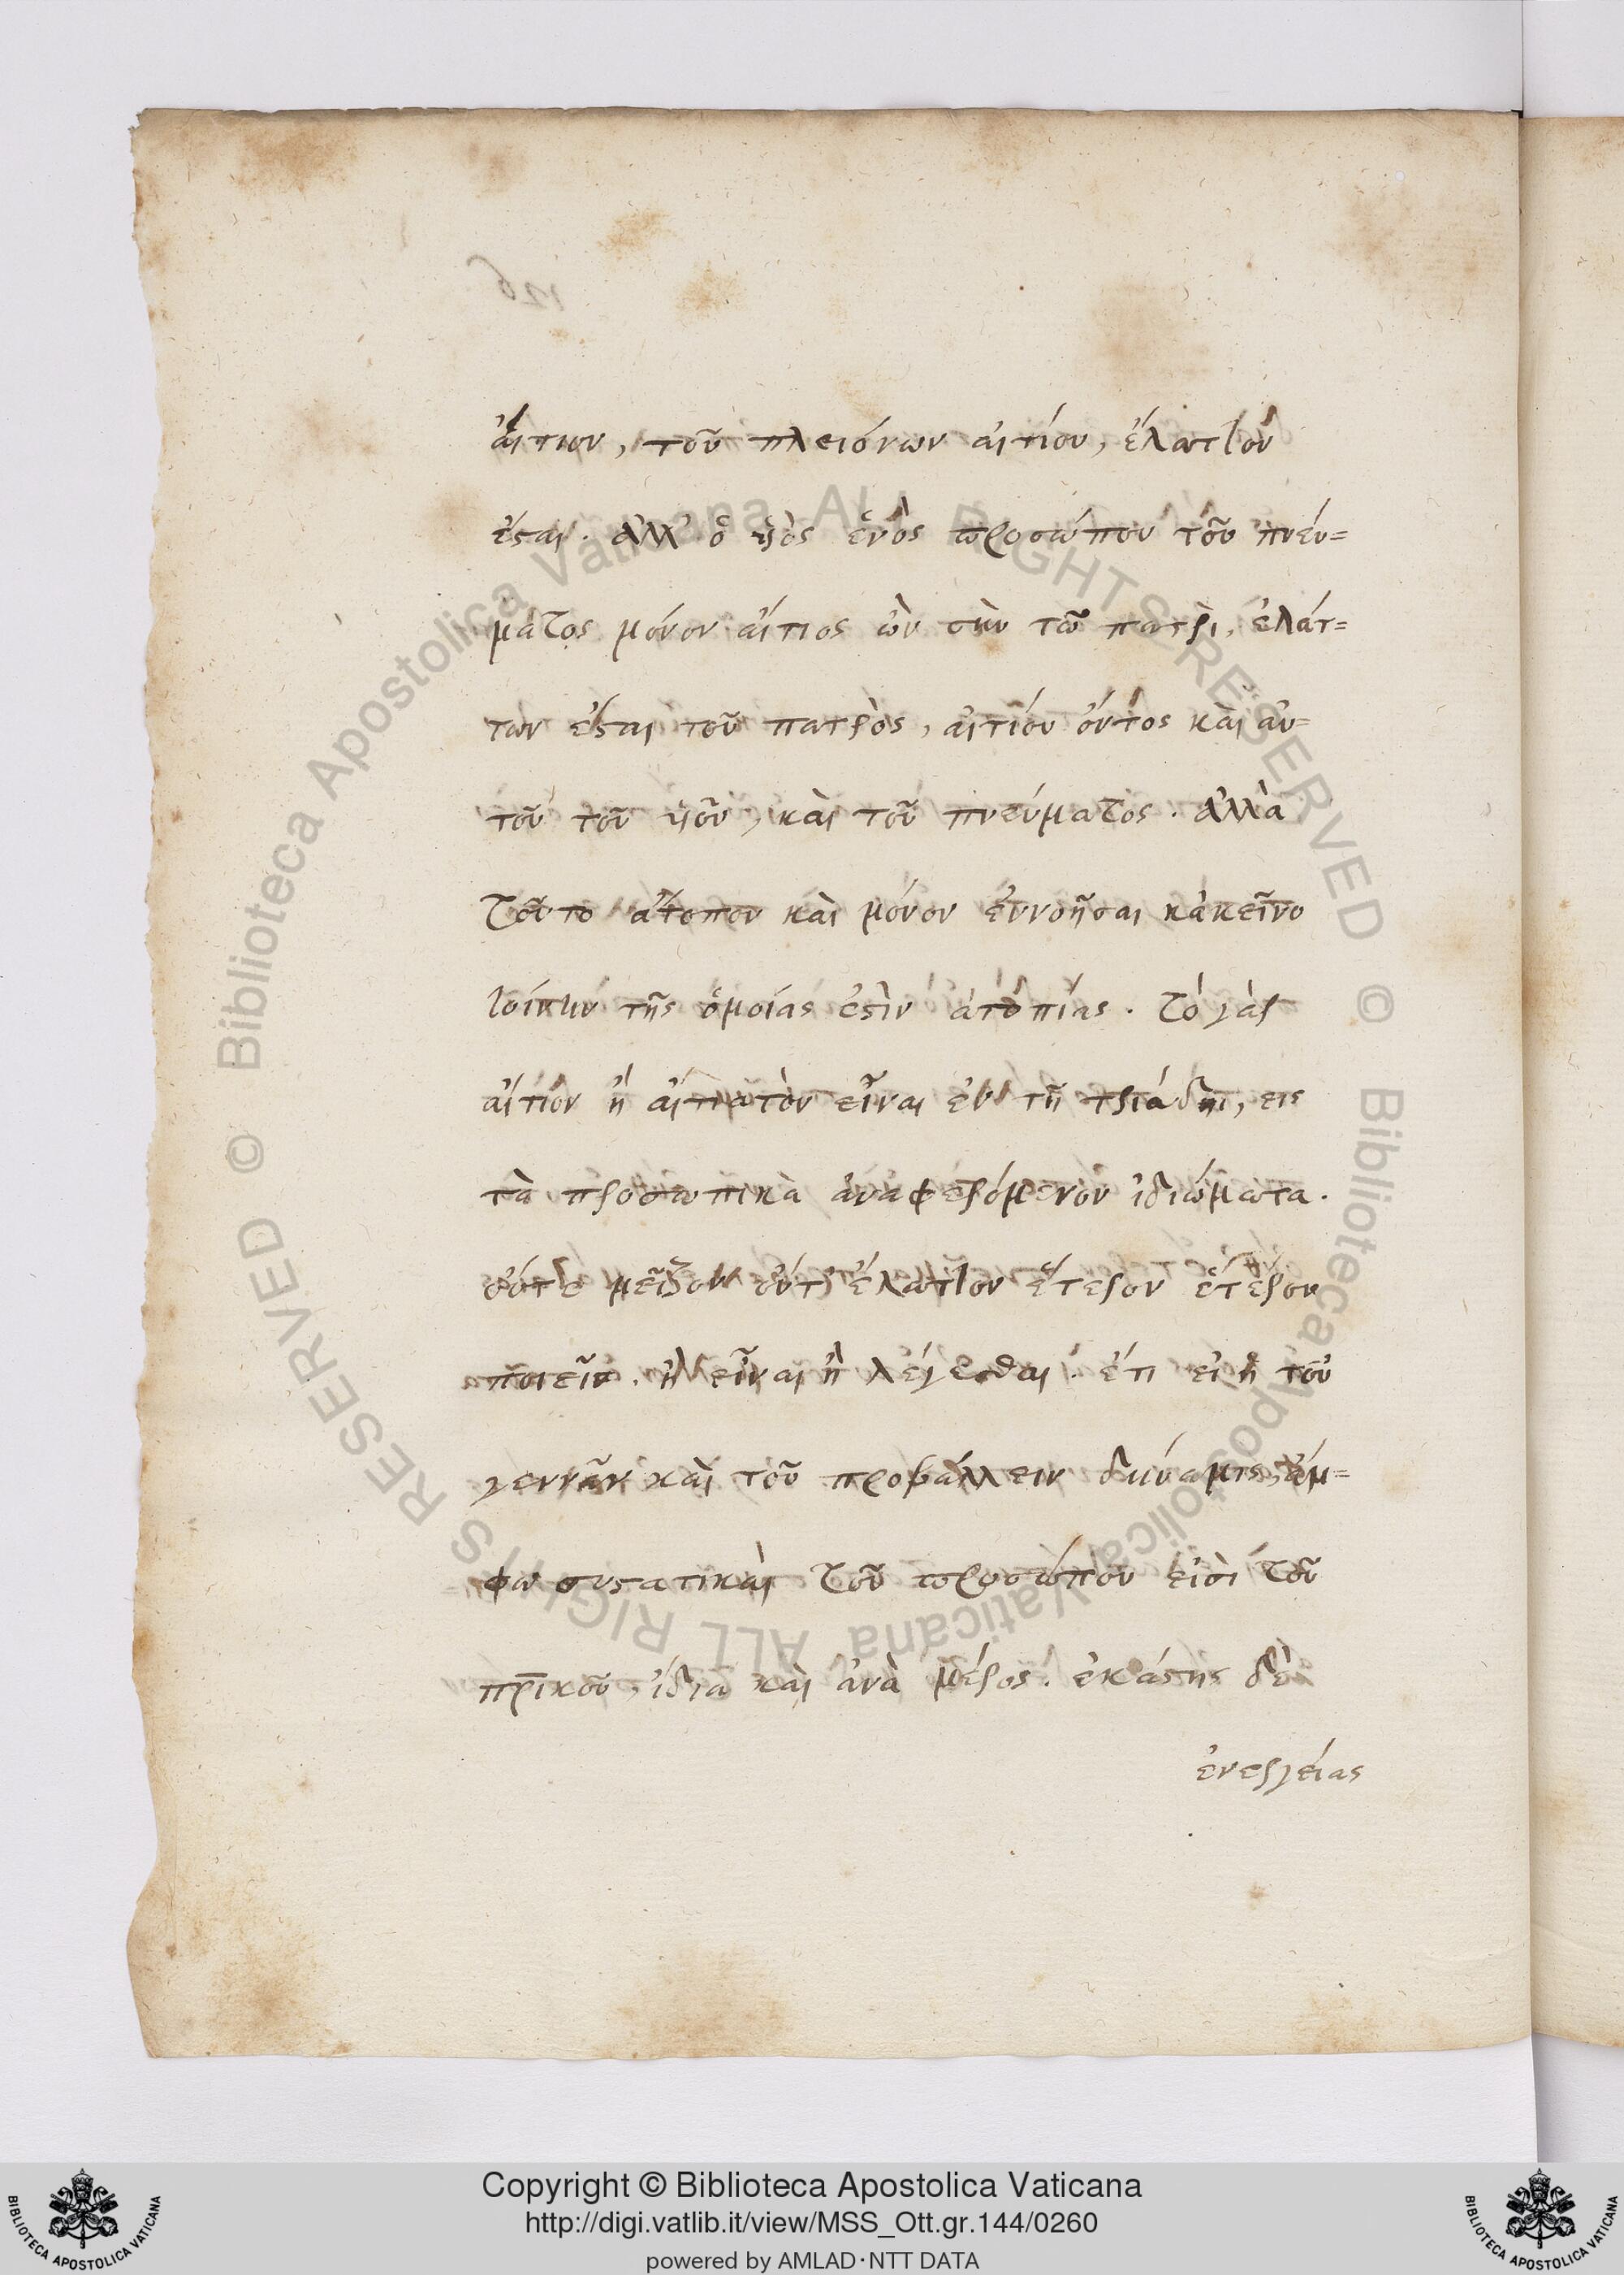 αἴτιον, τοῦ πλειόνων αἰτίου, ἔλαττον
ἔσται. ἀλλ' ὁ ὑϊὸς ἑνὸς προσώπου τοῦ πνεύ=
ματος μόνον αἴτιος ὢν σὺν τῶ πατρὶ, ἐλάτ=
των ἔσται τοῦ πατρὸς, αἰτίου ὄντος καὶ αὐ=
τοῦ τοῦ ὑϊοῦ, καὶ τοῦ πνεύματος. ἀλλὰ
τοῦτο ἄτοπον καὶ μόνον ἐννοῆσαι κἀκεῖνο
τοίνυν τῆς ὁμοίας ἐστὶν ἀτοπίας. τό γὰρ
αἴτιον ἢ αἰτιατὸν εἶναι ἐν τῆ τριάδι, εις
τὰ προσωπικὰ ἀναφερόμενον ἰδιώματα.
οὔτε μεῖζον οὔτ' ἔλαττον ἕτερον ἑτέρου
ποιεῖν. ἢ εἶναι ἢ λέγεσθαι. ἔτι εἰ ἡ τοῦ
γεννᾶν καὶ τοῦ προβάλλειν δύναμις, ἄμ=
φω συστατικαὶ τοῦ προσώπου εἰσὶ τοῦ
πρ̅ικοῦ, ἰδία καὶ ἀνὰ μέρος. ἑκάστης δὲ
ἐνεργείας
126
© Biblioteca Apostolica Vaticana ALL RIGHTS RESERVED
© Biblioteca Apostolica Vaticana ALL RIGHTS RESERVED
Copyright © Biblioteca Apostolica Vaticana
http://digi.vatlib.it/view/MSS_Ott.gr.144/0260
powered by AMLAD·NTT DATA
BIBLIOTECA APOSTOLICA VATICANA
BIBLIOTECA APOSTOLICA VATICANA